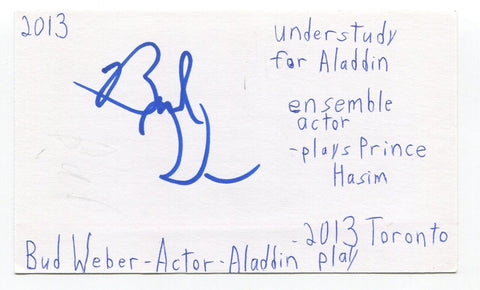 2013
understudy
for Aladdin
Bud
ensemble
actor
-plays Prince
Hasim
-2013 Toronto
Bud Weber-Actor-Aladdin play